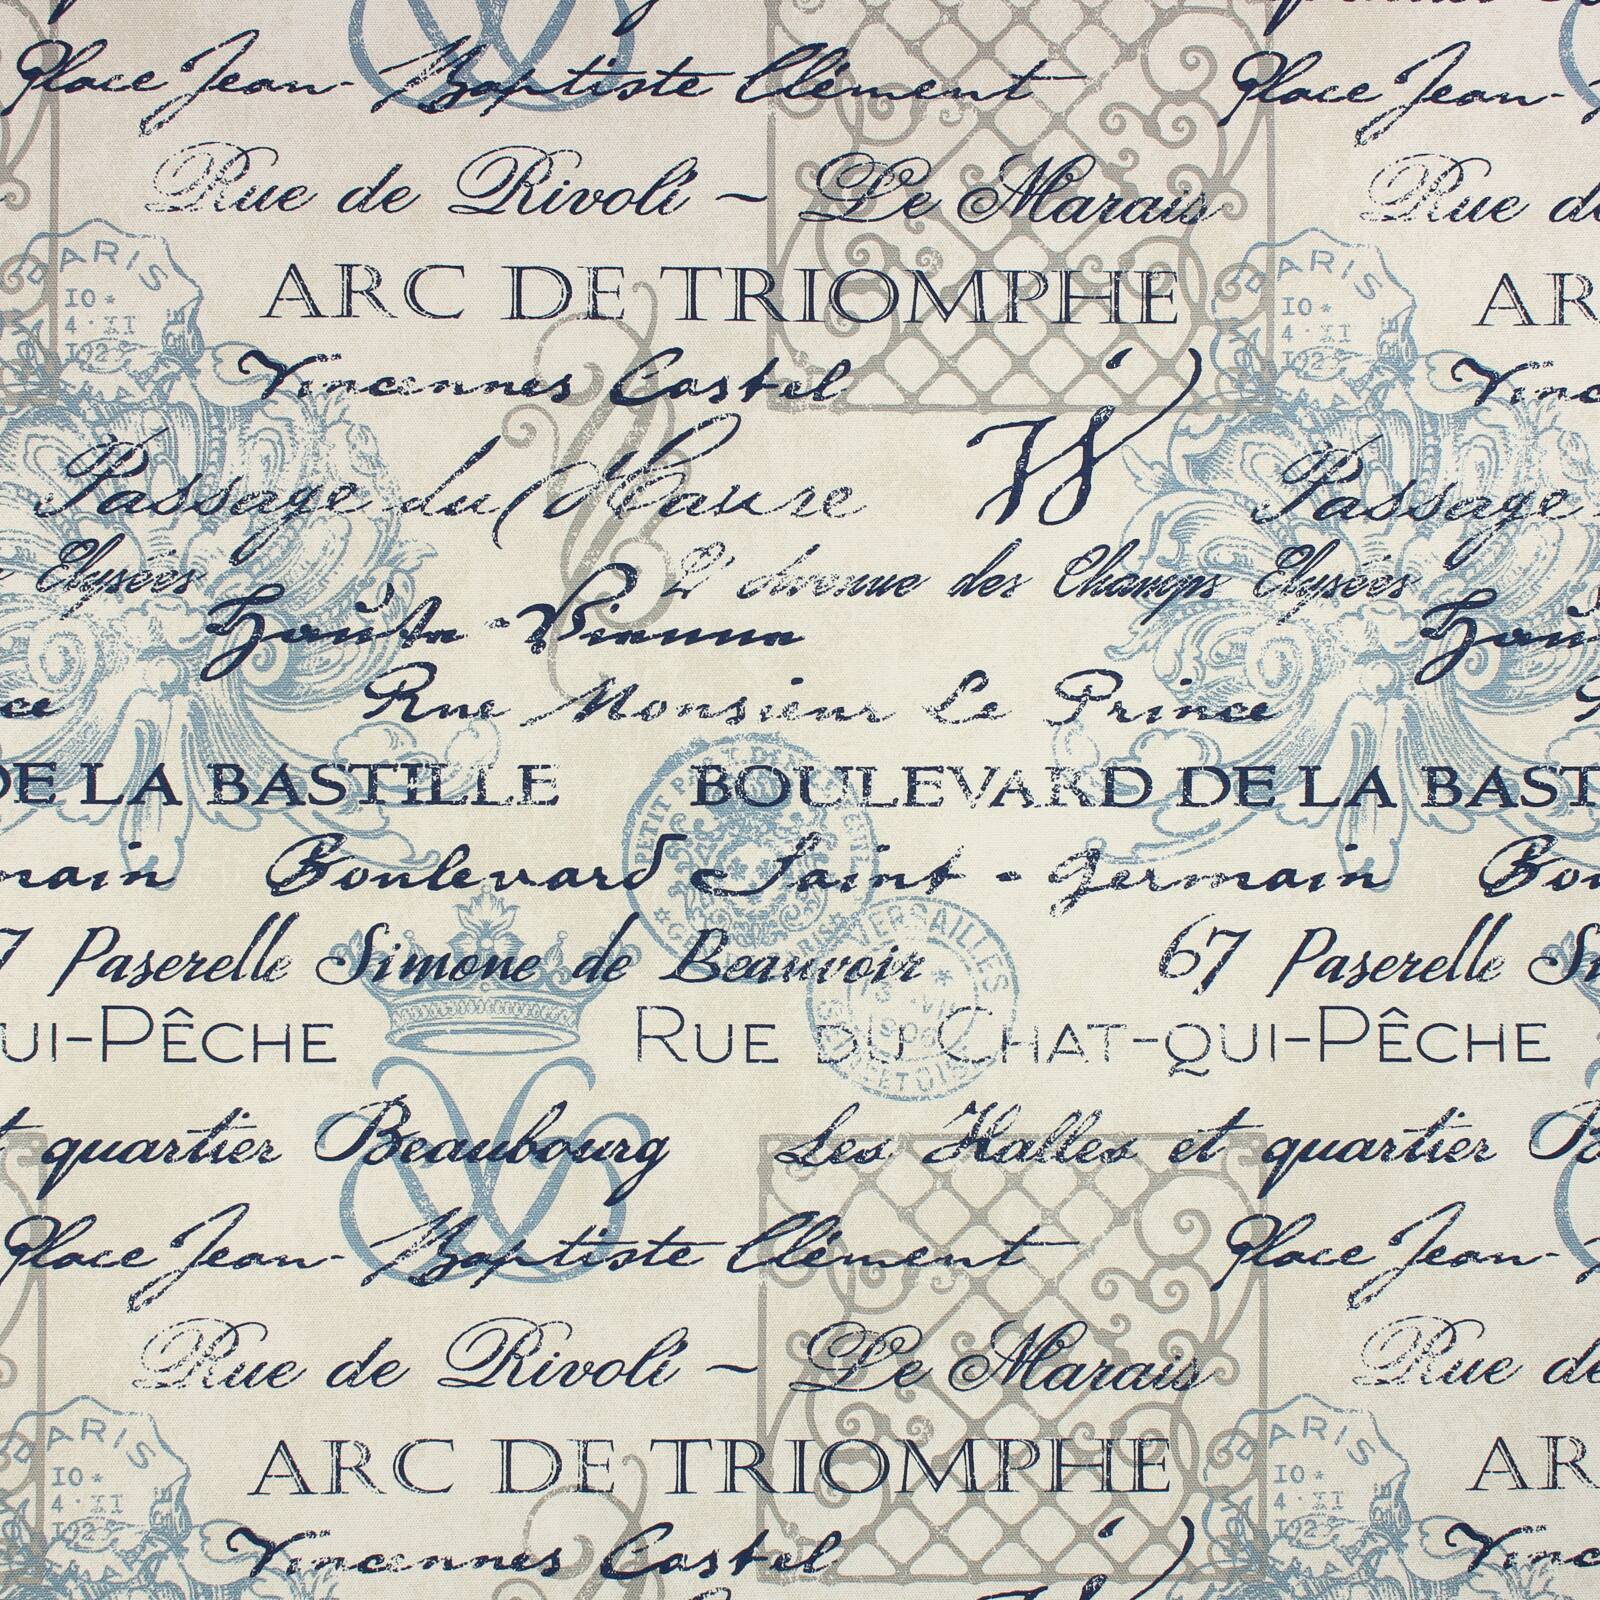 Place Jean-Baptiste Clément Place Jean-
Rue de Rivoli ~ Le Marais Rue de
PARIS PARIS
10 * 10 *
4·II 4·II
192 192
ARC DE TRIOMPHE AR
Vincennes Castel Vinc
W
Passage du Havre Passage
Elysées L'Avenue des Champs Elysées
Haute-Vienne Hau
ce Rue Monsieur Le Prince
DE LA BASTILLE BOULEVARD DE LA BAST
PETIT
main Boulevard Saint-Germain Bou
PARIS VERSAILLES
7 Paserelle Simone de Beauvoir 67 Paserelle Si
UI-PÊCHE RUE DU CHAT-QUI-PÊCHE
t quartier Beaubourg Les Halles et quartier B
Place Jean-Baptiste Clément Place Jean-
Rue de Rivoli ~ Le Marais Rue de
PARIS PARIS
10 * 10 *
4·II 4·II
192 192
ARC DE TRIOMPHE AR
Vincennes Castel Vinc